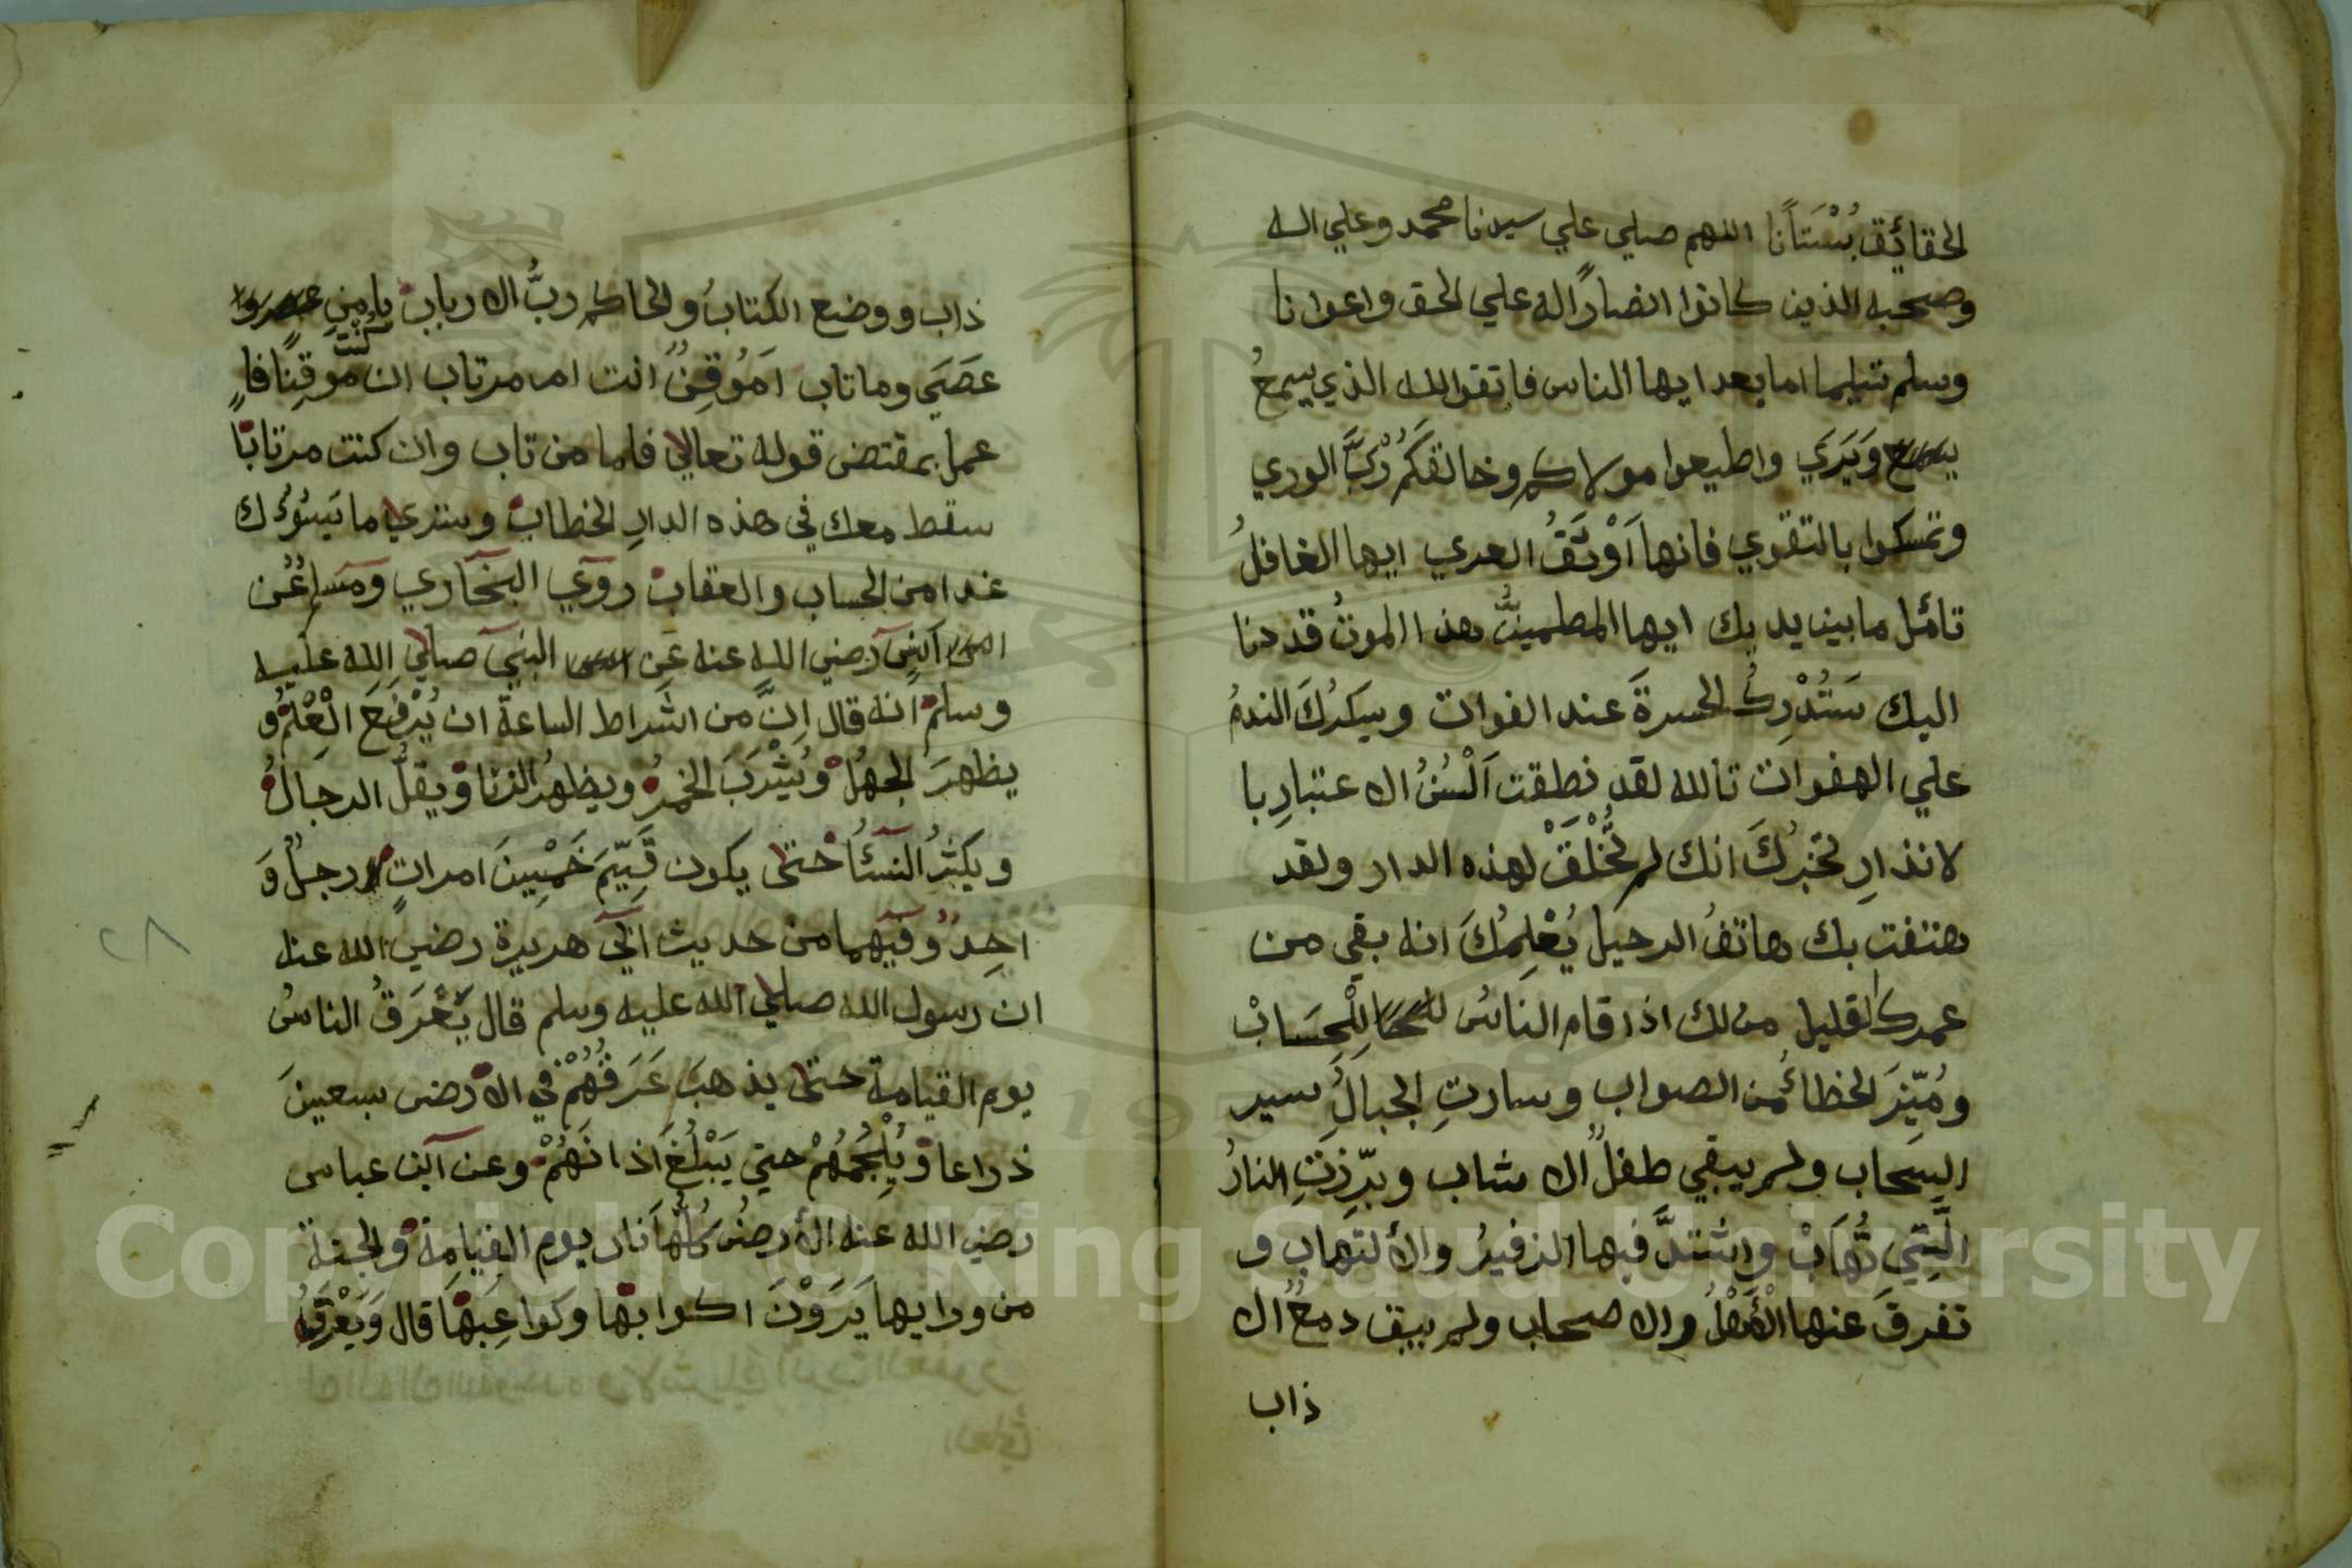 الحقائق بُسْتَانًا اللهم صلي علي سيدنا محمد وعلي اله
وصحبه الذين كانوا انصارًا له علي الحق واعوانا
وسلم تسليما اما بعد ايها الناس فاتقوا الله الذي يسمعُ
وَيَرَي واطيعوا مولاكم وخالقكم رَبَّ الوري
وتمسكوا بالتقوي فانها اَوْثَقُ العري ايها الغافلُ
تامّل ما بين يديك ايها المطمينُّ هذا الموتُ قد دنا
اليك سَتُدْرِكُ الحسرةَ عند الفوات وسيدركَ الندمُ
علي الهفوات تالله لقد نطقت اَلْسُنُ الاعتبارِ با
لانذارِ تخبرُكَ انك لم تُخْلَقْ لهذه الدار ولقد
هتفت بك هاتفُ الرحيل يُعْلِمُكَ انه بقي من
عمرك القليل من لك اذا قام الناسُ لِلْحِسَابْ
ومُيِّزَ الخطاءُ من الصواب وسارتِ الجبالُ سير
السحاب ولم يبقي طفلٌ الا شاب وبرّزتِ النارُ
الَّتِي تُهَابْ واشتدَّ فيها الزفيرُ والألتهاب و
تفرقَ عنها الْأَهْلُ والاصحاب ولم يبق دمعٌ الا
ذاب
ذاب ووضع الكتابُ والحاكم ربُّ الارباب يا من
عَصَي وما تاب اَمُوقِنٌ انت ام مرتاب ان كُنْتَ موقِنًا فا
عمل بمقتضي قوله تعالي فاما من تاب وان كنت مرتابًا
سقط معك في هذه الدارِ الخطاب وستري ما يَسُوْءُك
غدا من الحساب والعقاب روي البخاري ومسلم عَن
اَنسٍ رضي الله عنه عَن النبي صلي الله عليه
وسلم انه قال اِنَّ من اشراط الساعة ان يُرْفَعَ الْعِلْمُ و
يظهرَ الجهلُ ويُشْرَبَ الخمرُ ويظهرُ الزنا ويقلُّ الرجالُ
ويكثرُ النسٓاءُ حتي يكون قَيِّمَ خَمْسِينَ امراتٍ رجلٌ وَ
احِدٌ وفيهما من حديث ابي هريرة رضي الله عنه
ان رسول الله صلي الله عليه وسلم قال يَعْرَقُ الناسُ
يوم القيامة حتي يذهبَ عَرَقُهُمْ في الارض سبعينَ
ذراعا ويُلْجِمُهُمْ حتي يَبْلُغَ اَذانَهُمْ وعن ابن عباس
رضي الله عنه الأرضُ كُلُّهَا نار يوم القيامة والجنة
من ورايها يَرَوْنَ اكوابَها وكواعِبَهَا قال وَيَعْرَقُ
٢٨